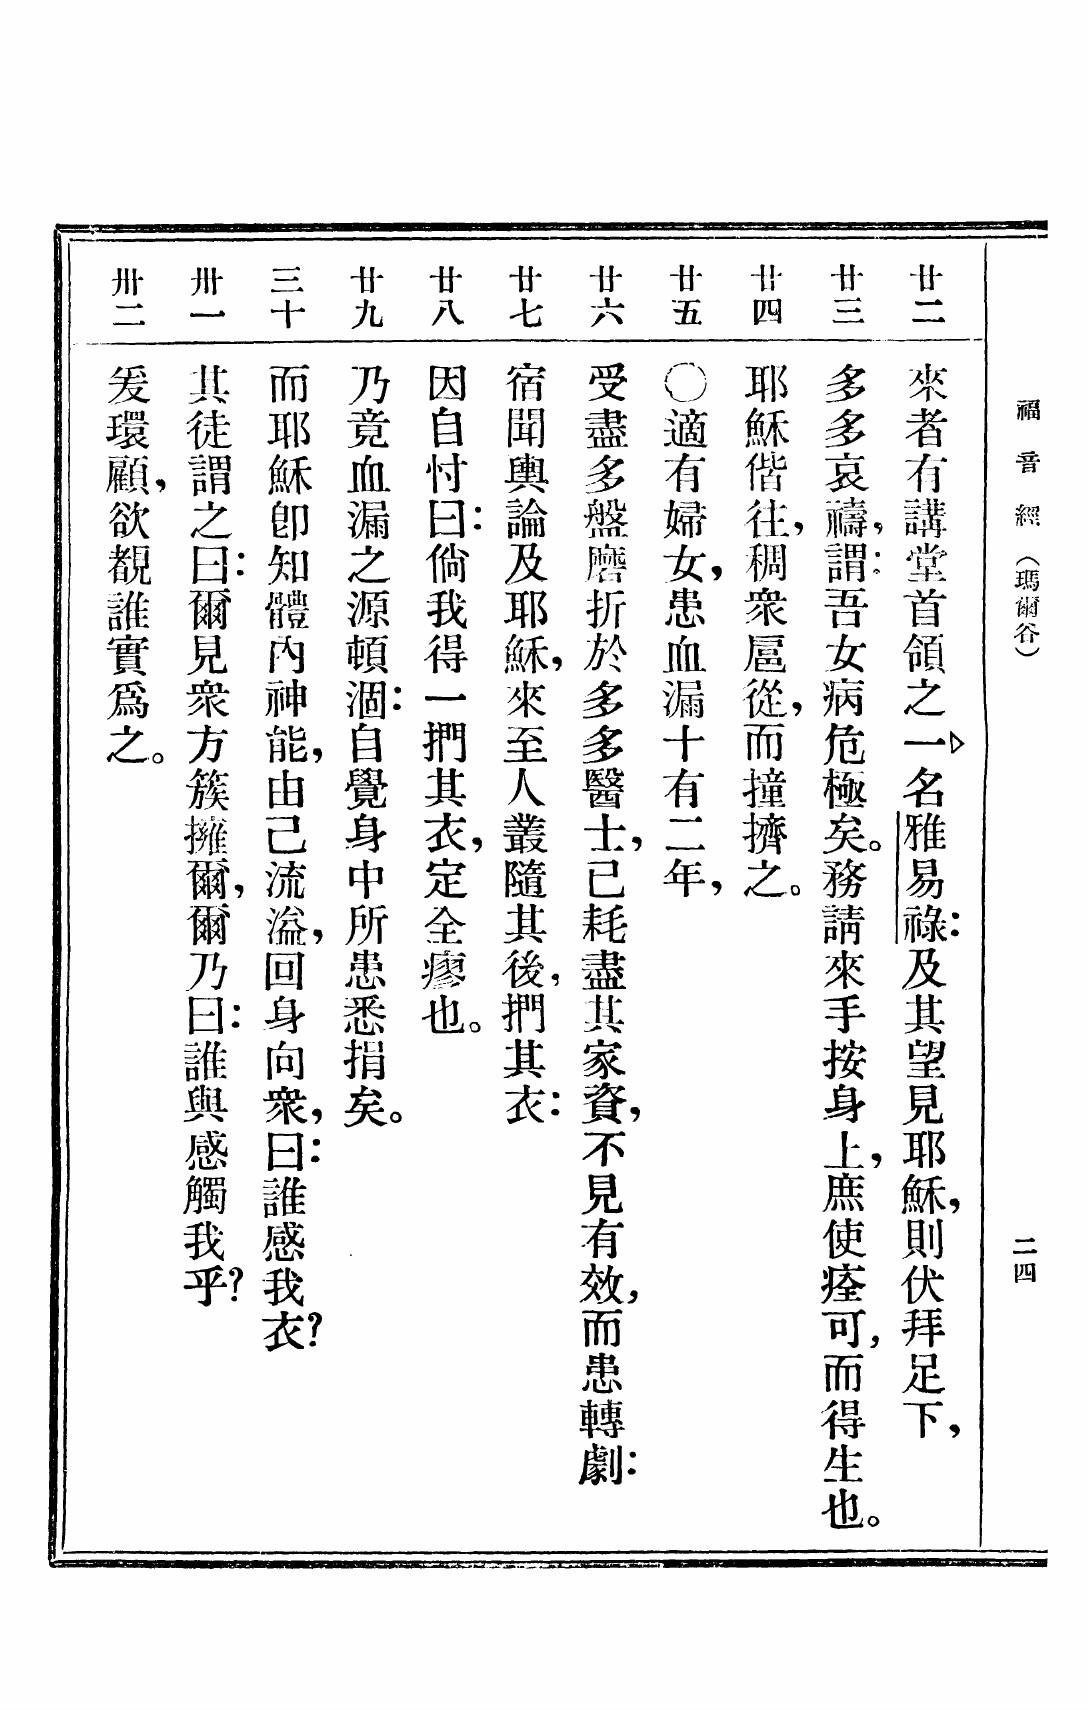 福音經（瑪爾谷）　二四
廿二　來者有講堂首領之一▷名雅易祿：及其望見耶穌，則伏拜足下，
廿三　多多哀禱，謂：吾女病危極矣。務請來手按身上，庶使痊可，而得生也。
廿四　耶穌偕往，稠衆扈從，而撞擠之。
廿五　○適有婦女，患血漏十有二年，
廿六　受盡多盤磨折於多多醫士，己耗盡其家資，不見有效，而患轉劇：
廿七　宿聞輿論及耶穌，來至人叢隨其後，捫其衣：
廿八　因自忖曰：倘我得一捫其衣，定全瘳也。
廿九　乃竟血漏之源頓涸：自覺身中所患悉捐矣。
三十　而耶穌卽知體內神能，由己流溢，回身向衆，曰：誰感我衣？
卅一　其徒謂之曰：爾見衆方簇擁爾，爾乃曰：誰與感觸我乎？
卅二　爰環顧，欲覩誰實爲之。